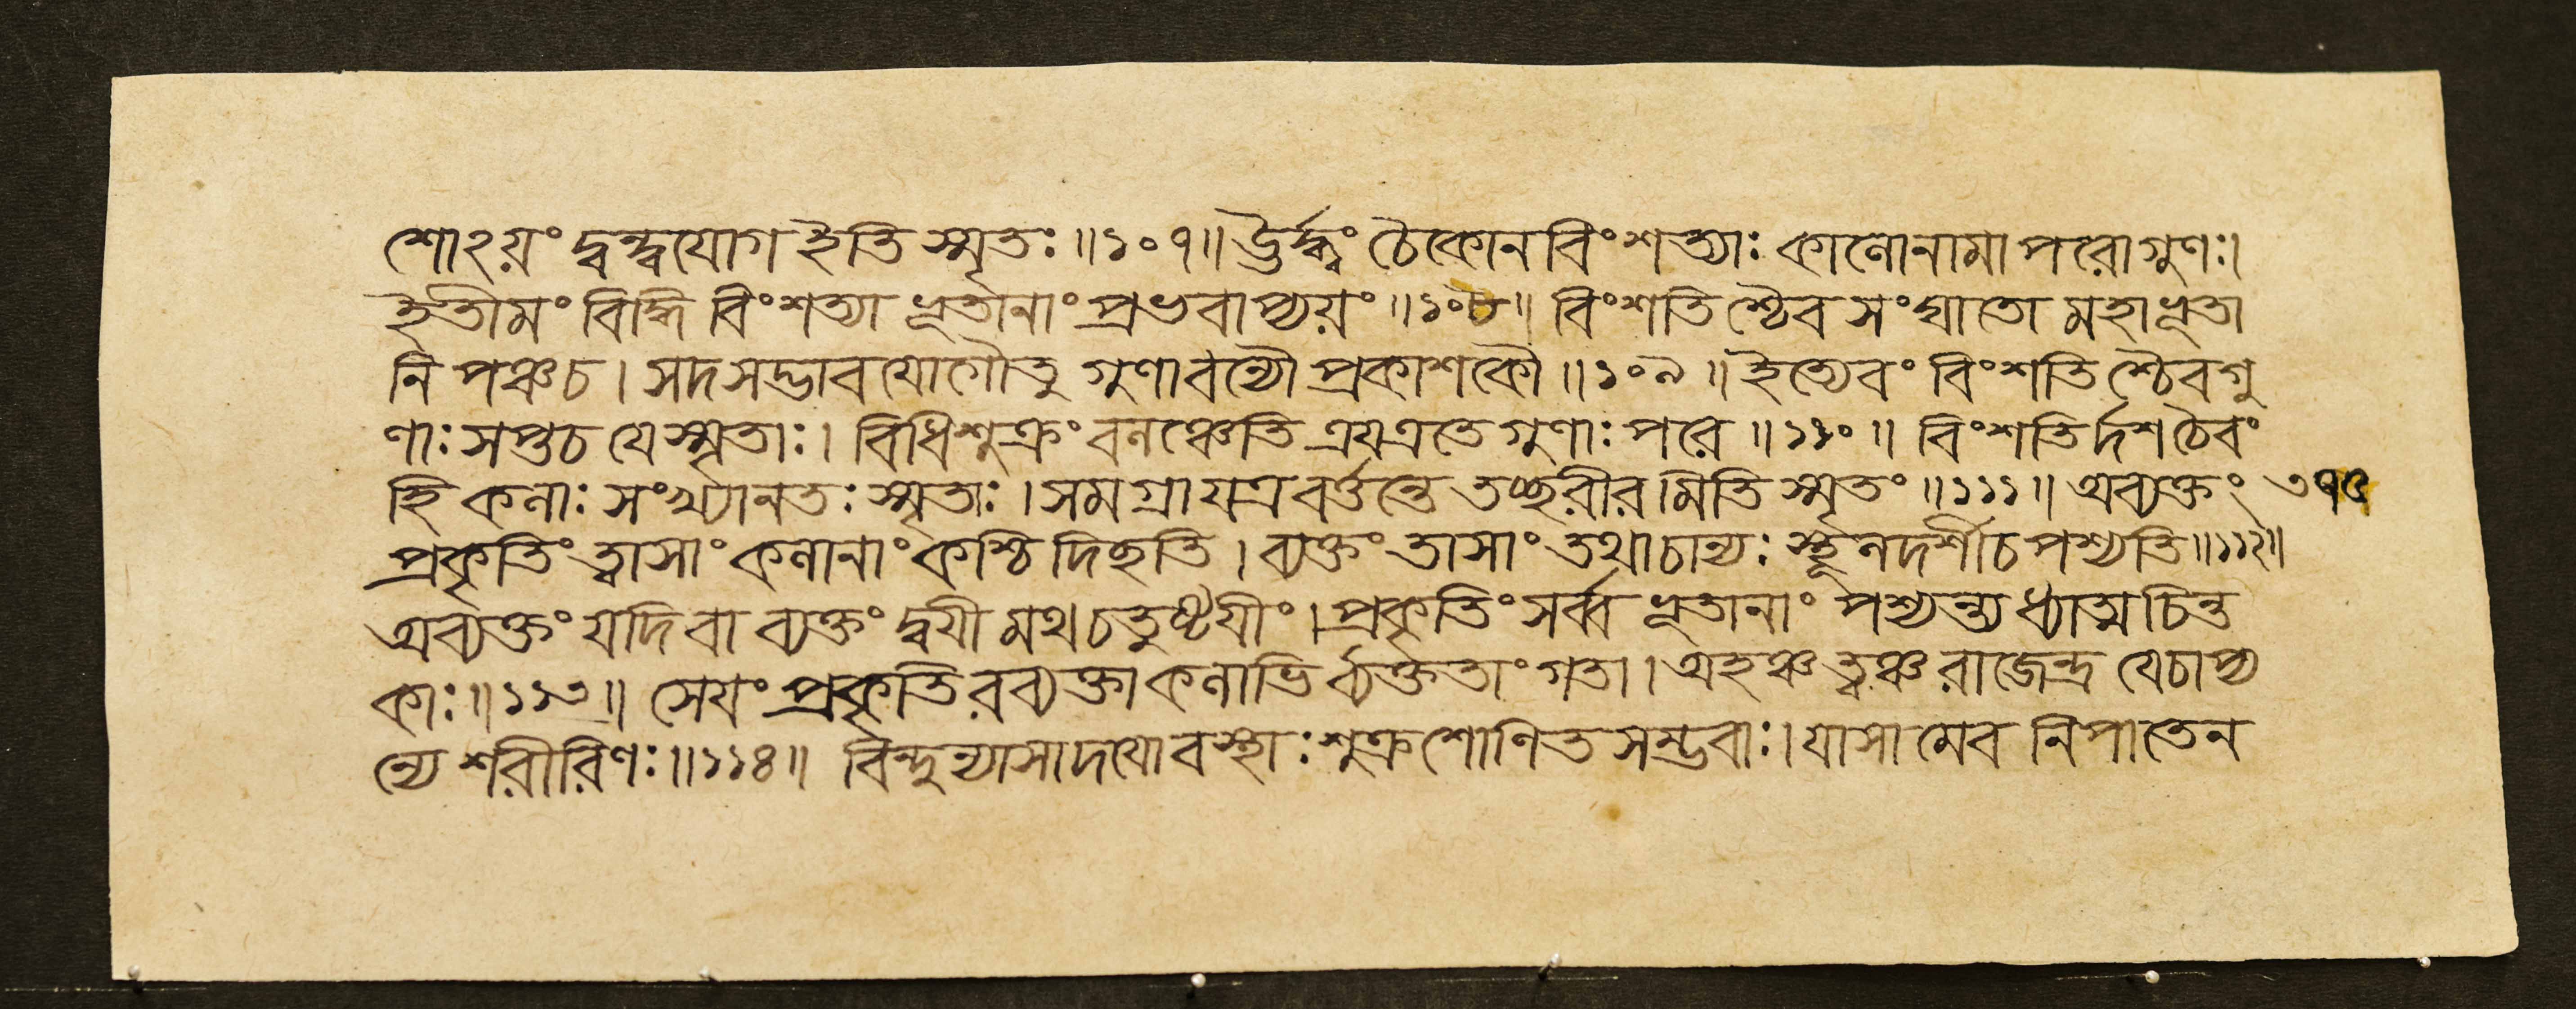 শোঽয়ং দ্বন্দ্বযোগ ইতি স্মৃতঃ॥১০৭॥ ঊর্দ্ধ্বং চৈকোনবিংশত্যাঃ কালোনামাপরোগুণঃ।
ইতীমং বিদ্ধি বিংশত্যা ভূতানাং প্রভবাপ্যয়ং॥১০৮॥ বিংশতিশ্চৈব সংঘাতো মহাভূতা
নি পঞ্চচ। সদসদ্ভাবযোগৌতু গুণাবন্যৌ প্রকাশকৌ॥১০৯॥ ইত্যেবং বিংশতিশ্চৈবগু
ণাঃ সপ্তচ যে স্মৃতাঃ। বিধিশুক্রং বলঞ্চেতি ত্রয়এতে গুণাঃ পরে॥১১০॥ বিংশতির্দশচৈবং
হি কলাঃ সংখ্যানতঃ স্মৃতাঃ। সমগ্রা যত্র বর্ত্তন্তে তচ্ছরীরমিতি স্মৃতং॥১১১॥ অব্যক্তং ৩৭৫
প্রকৃতিং ত্বাসাং কলানাং কশ্চিদিছতি। ব্যক্তং তাসাং তথাচান্যঃ স্থূলদর্শীচ পশ্যতি॥১১২॥
অব্যক্তং যদিবা ব্যক্তং দ্বয়ীমথ চতুষ্টয়ীং। প্রকৃতিং সর্ব্ব ভূতানাং পশ্যন্ত্যধ্যাত্মচিন্ত
কাঃ॥১১৩॥ সেয়ং প্রকৃতিরব্যক্তা কলাভির্ব্যক্ততাং গতা। অহঞ্চ ত্বঞ্চ রাজেন্দ্র যেচাপ্য
ন্যে শরীরিণঃ॥১১৪॥ বিন্দুন্যাসাদযোবস্থাঃ শুক্রশোণিতসম্ভবাঃ। যাসামেব নিপাতেন